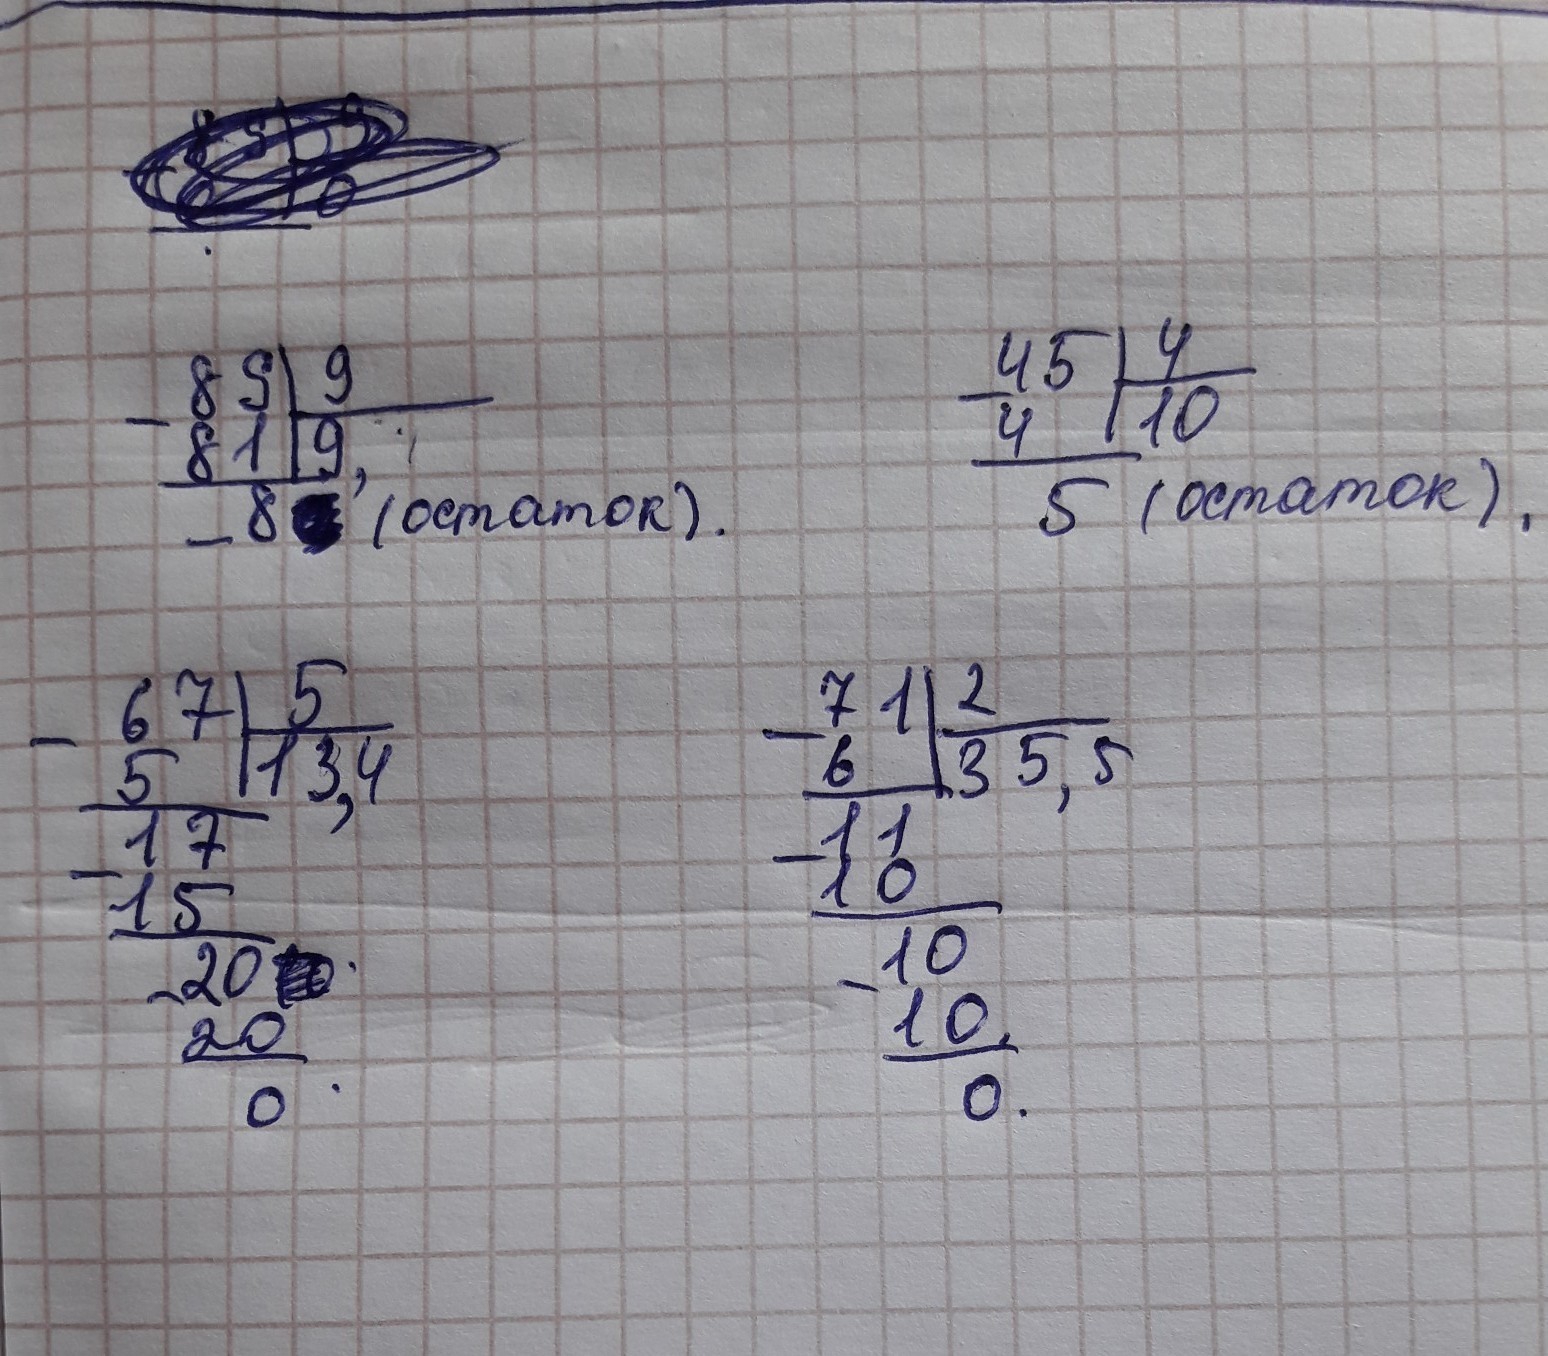 89 9
- 81 9,
- 8 (остаток).
45 4
- 4 10
5 (остаток).
67 5
- 5 13,4
17
- 15
- 20
20
0
71 2
- 6 35,5
11
- 10
10
- 10.
0.